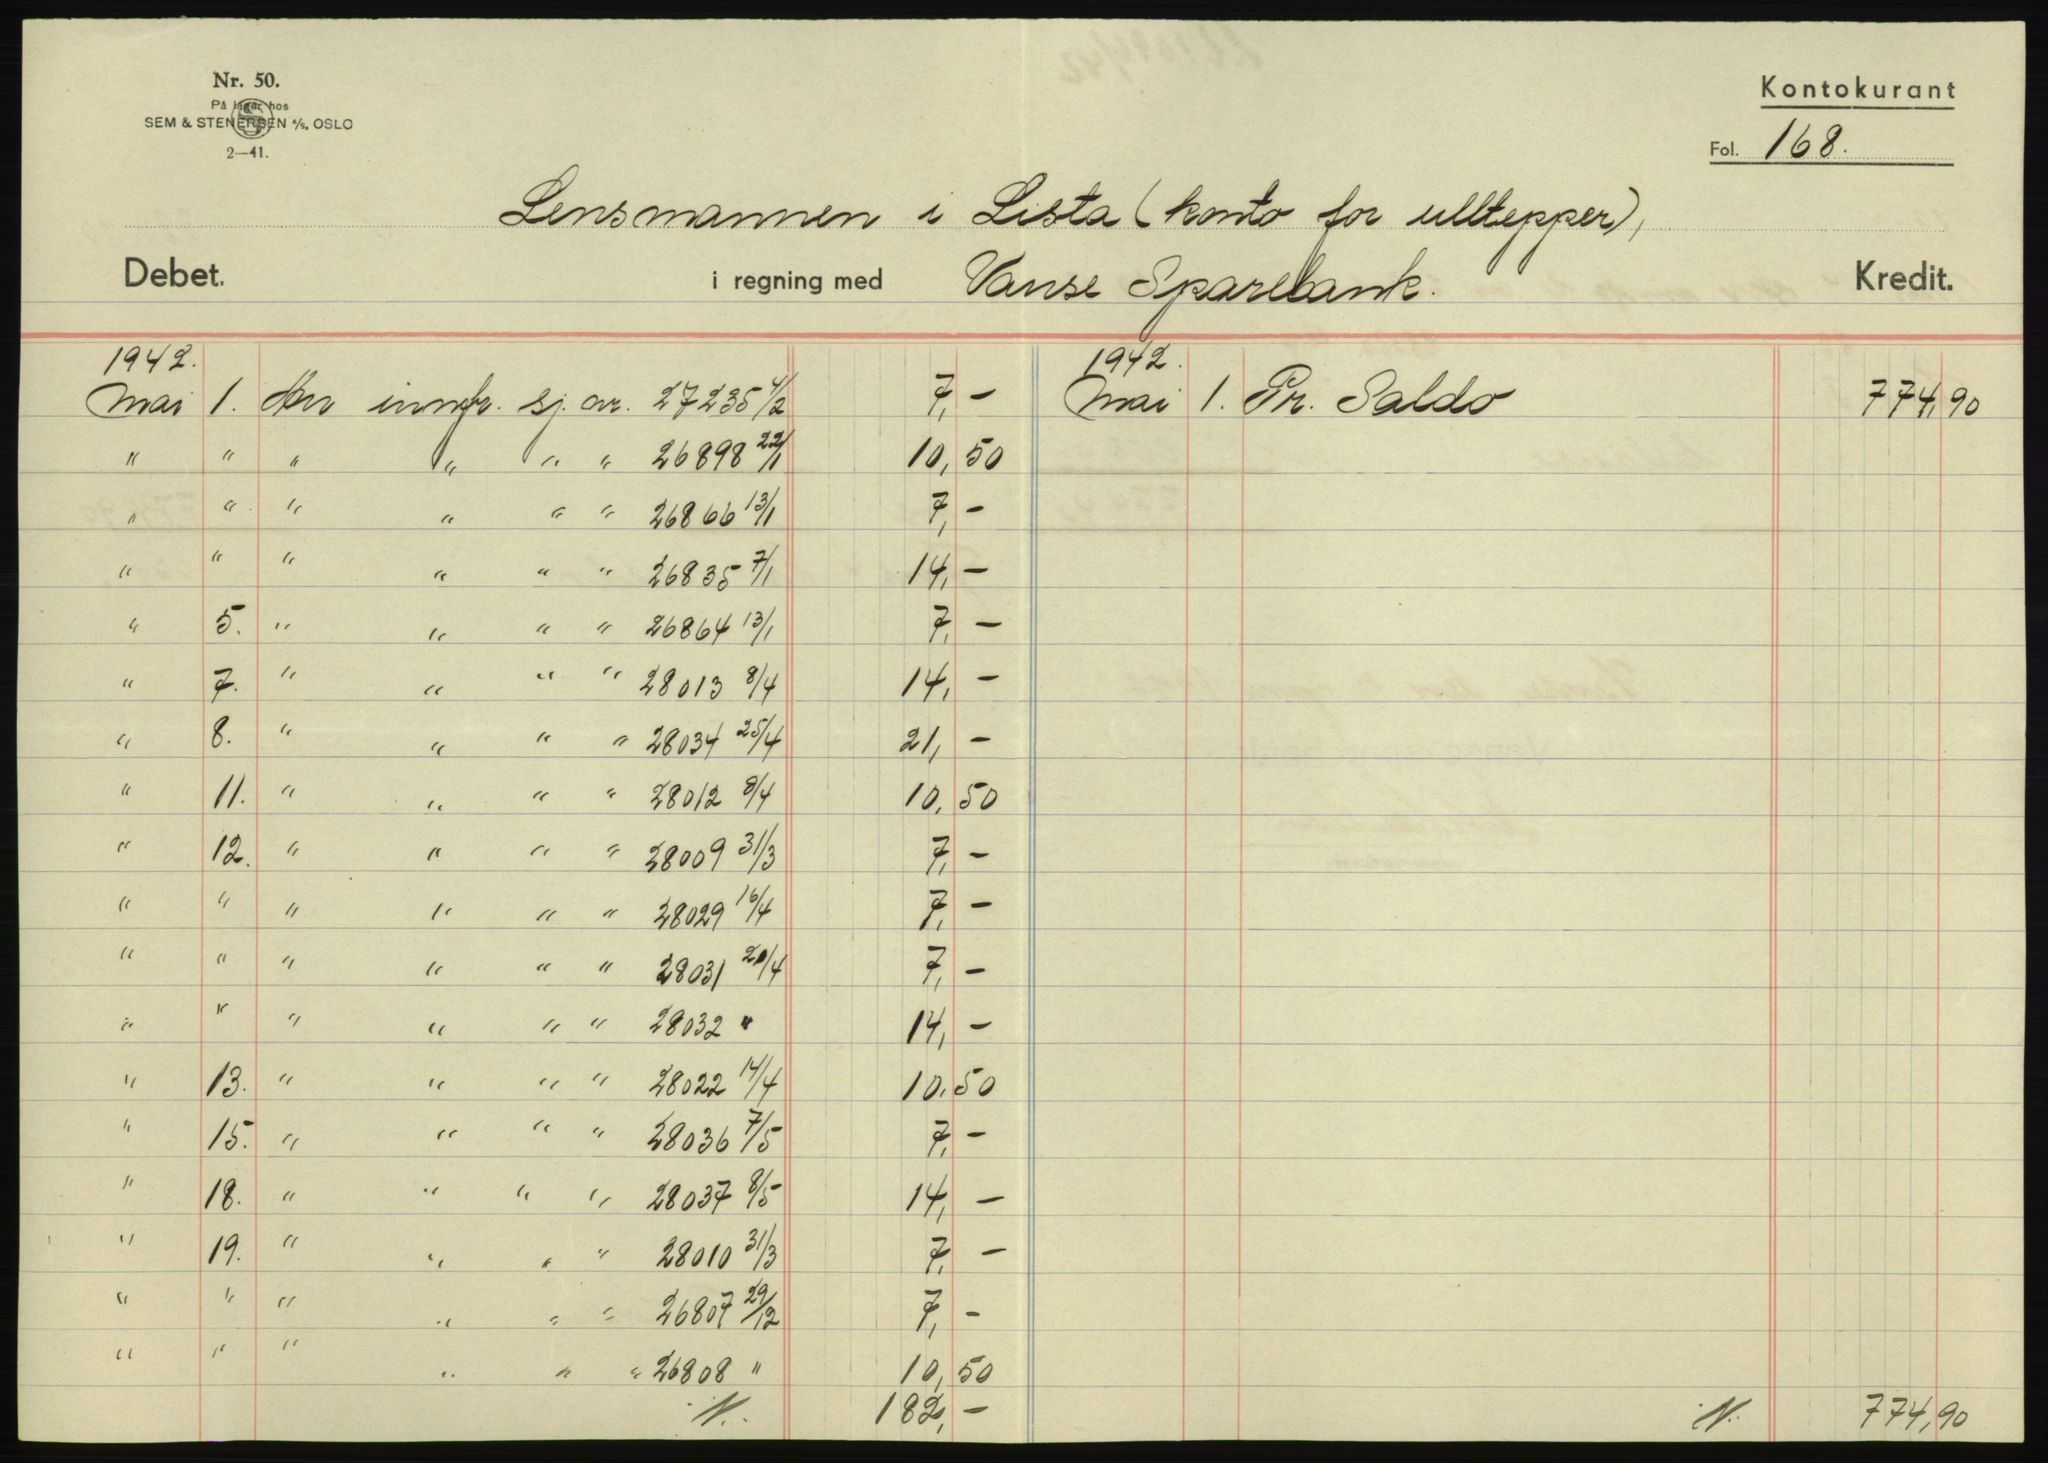 Nr. 50.
På lager hos
SEM & STENERSEN A/S, OSLO
2—41.
Kontokurant
Fol. 168.
Lensmannen i Lista (konto for ulltepper),
Debet. i regning med Vanse Sparebank. Kredit.
1942. 1942.
Mai 1. Den innfr. sj. nr. 27235 4/2 7,— Mai 1. Pr. Saldo 774,90
" " " " " " 26898 22/1 10,50
" " " " " " 26866 13/1 7,—
" " " " " " 26835 7/1 14,—
" 5. " " " " 26864 13/1 7,—
" 7. " " " " 28013 8/4 14,—
" 8. " " " " 28034 25/4 21,—
" 11. " " " " 28012 8/4 10,50
" 12. " " " " 28009 31/3 7,—
" " " " " " 28029 16/4 7,—
" " " " " " 28031 20/4 7,—
" " " " " " 28032 " 14,—
" 13. " " " " 28022 14/4 10,50
" 15. " " " " 28036 7/5 7,—
" 18. " " " " 28037 8/5 14,—
" 19. " " " " 28010 31/3 7,—
" " " " " " 26807 29/12 7,—
" " " " " " 26808 " 10,50
N. 182,— N. 774,90